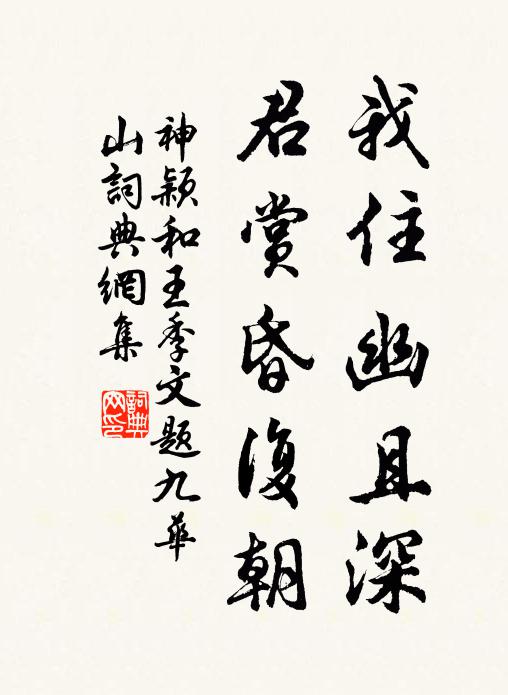 我住幽且深
君賞昏復朝
神颖和王季文題九華
山詞典網集
詞典
网印